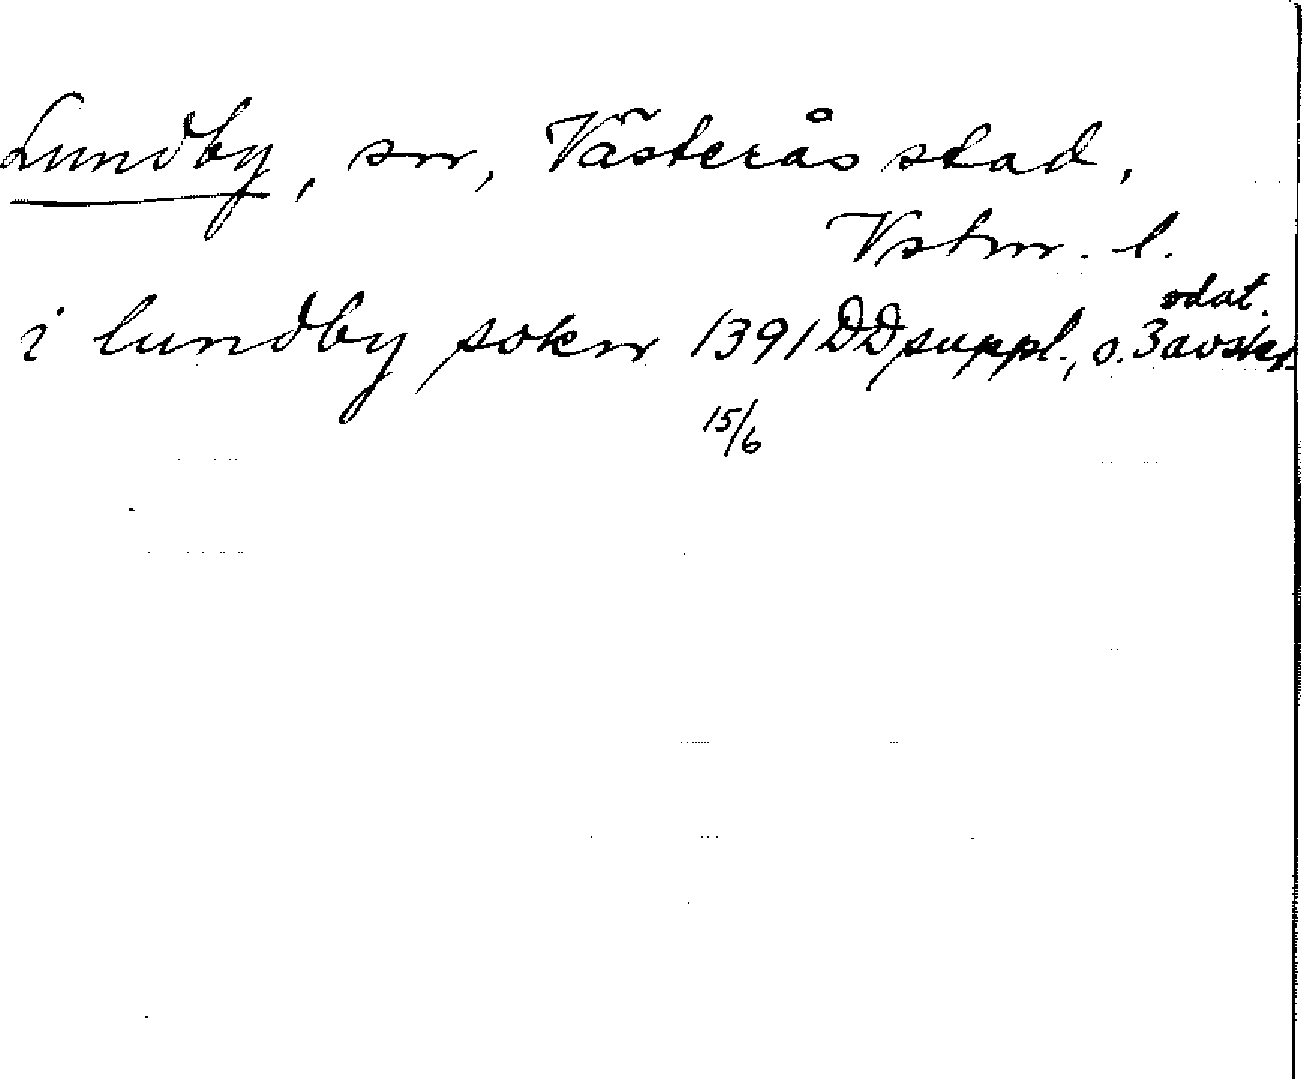 Lundby, sn, Västerås stad,
Vstm. l.
i lundby sokn 1391 DD suppl., o. 3 odat. avskr.
15/6